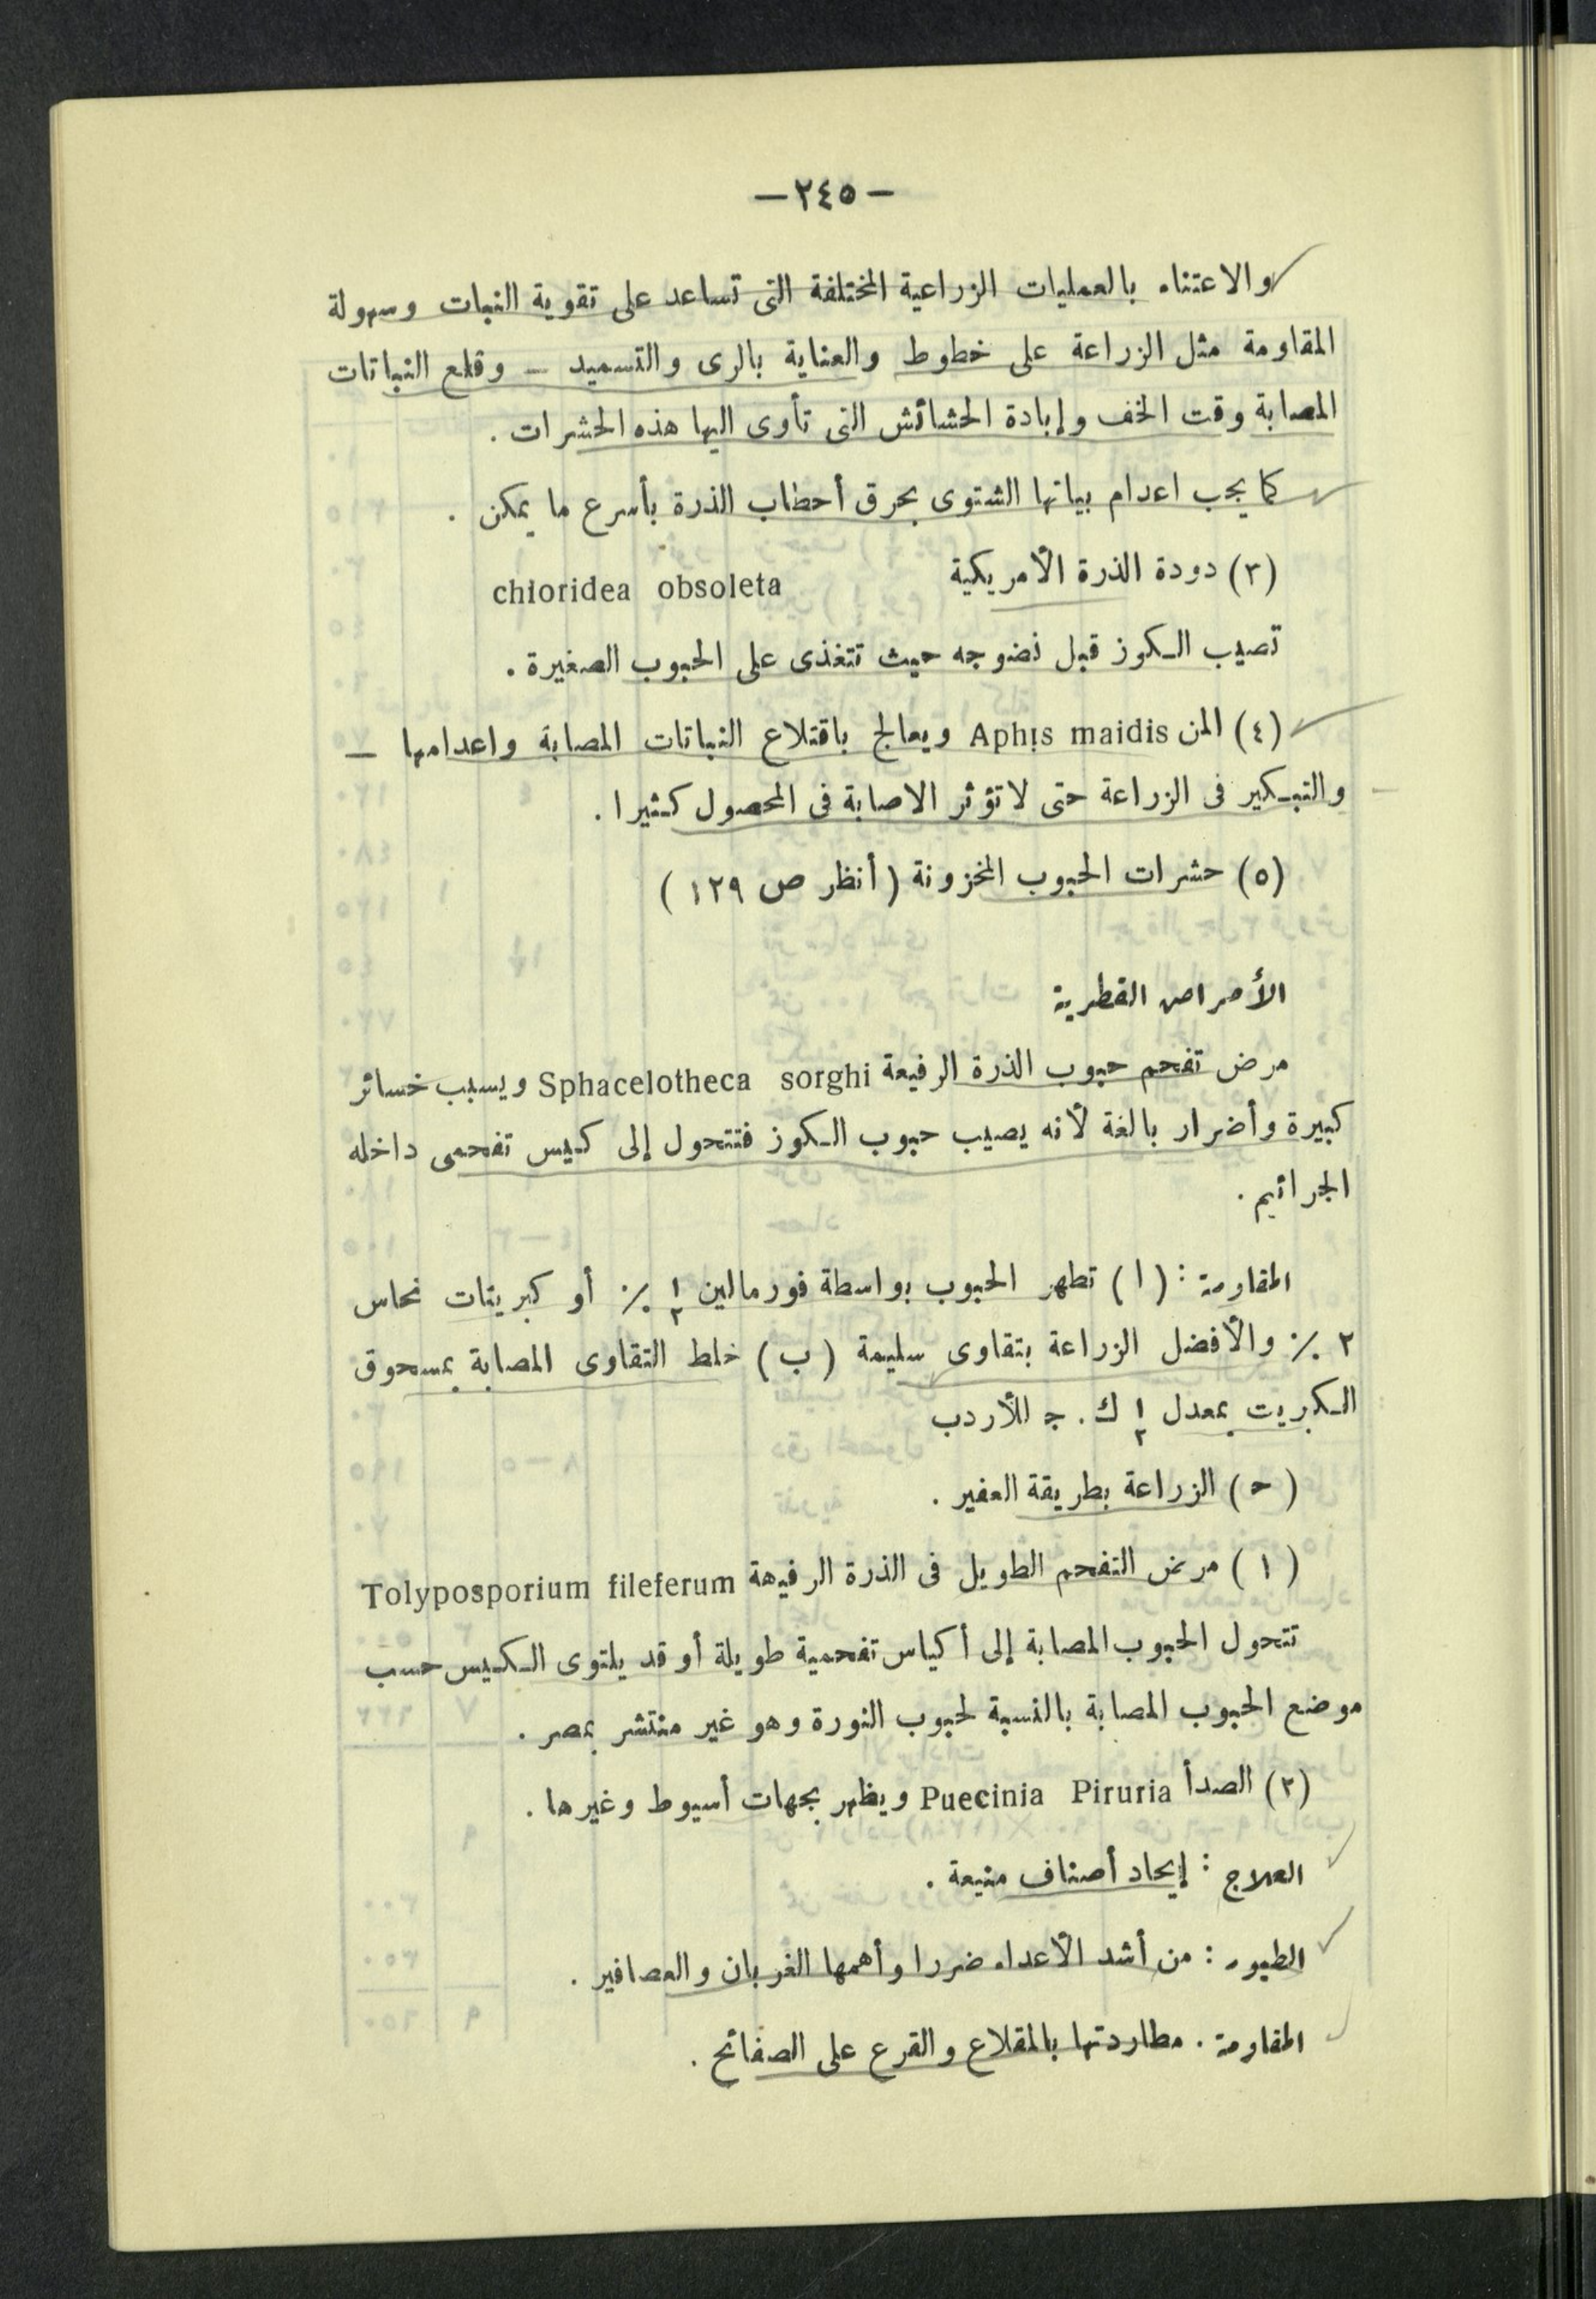 — ٢٤٥ —
والاعتناء بالعمليات الزراعية المختلفة التى تساعد على تقوية النبات وسهولة
المقاومة مثل الزراعة على خطوط والعناية بالرى والتسميد — وقلع النباتات
المصابة وقت الخف وإبادة الحشائش التى تأوى اليها هذه الحشرات .
كما يجب اعدام بياتها الشتوى بحرق أحطاب الذرة بأسرع ما يمكن .
(٣) دودة الذرة الأمريكية chloridea obsoleta
تصيب الكوز قبل نضوجه حيث تتغذى على الحبوب الصغيرة .
(٤) المن Aphis maidis ويعالج باقتلاع النباتات المصابة واعدامها —
والتبكير فى الزراعة حتى لا تؤثر الاصابة فى المحصول كثيرا .
(٥) حشرات الحبوب المخزونة ( أنظر ص ١٢٩ )
الأمراض الفطرية
مرض تفحم حبوب الذرة الرفيعة Sphacelotheca sorghi ويسبب خسائر
كبيرة وأضرار بالغة لأنه يصيب حبوب الكوز فتتحول إلى كيس تفحمى داخله
الجراثيم .
المقاومة : (ا) تطهر الحبوب بواسطة فورمالين ١/٢ ٪ أو كبريتات نحاس
٢ ٪ والأفضل الزراعة بتقاوى سليمة (ب) خلط التقاوى المصابة بمسحوق
الكبريت بمعدل ١/٢ ك . ج للأردب
(ح) الزراعة بطريقة العفير .
(١) مرض التفحم الطويل فى الذرة الرفيعة Tolyposporium fileferum
تتحول الحبوب المصابة إلى أكياس تفحمية طويلة أو قد يلتوى الكيس حسب
موضع الحبوب المصابة بالنسبة لحبوب النورة وهو غير منتشر بمصر .
(٢) الصدأ Puecinia Piruria ويظهر بجهات أسيوط وغيرها .
العلاج : إيجاد أصناف منيعة .
الطيور : من أشد الأعداء ضررا وأهمها الغربان والعصافير .
المقاومة . مطاردتها بالمقلاع والقرع على الصفائح .